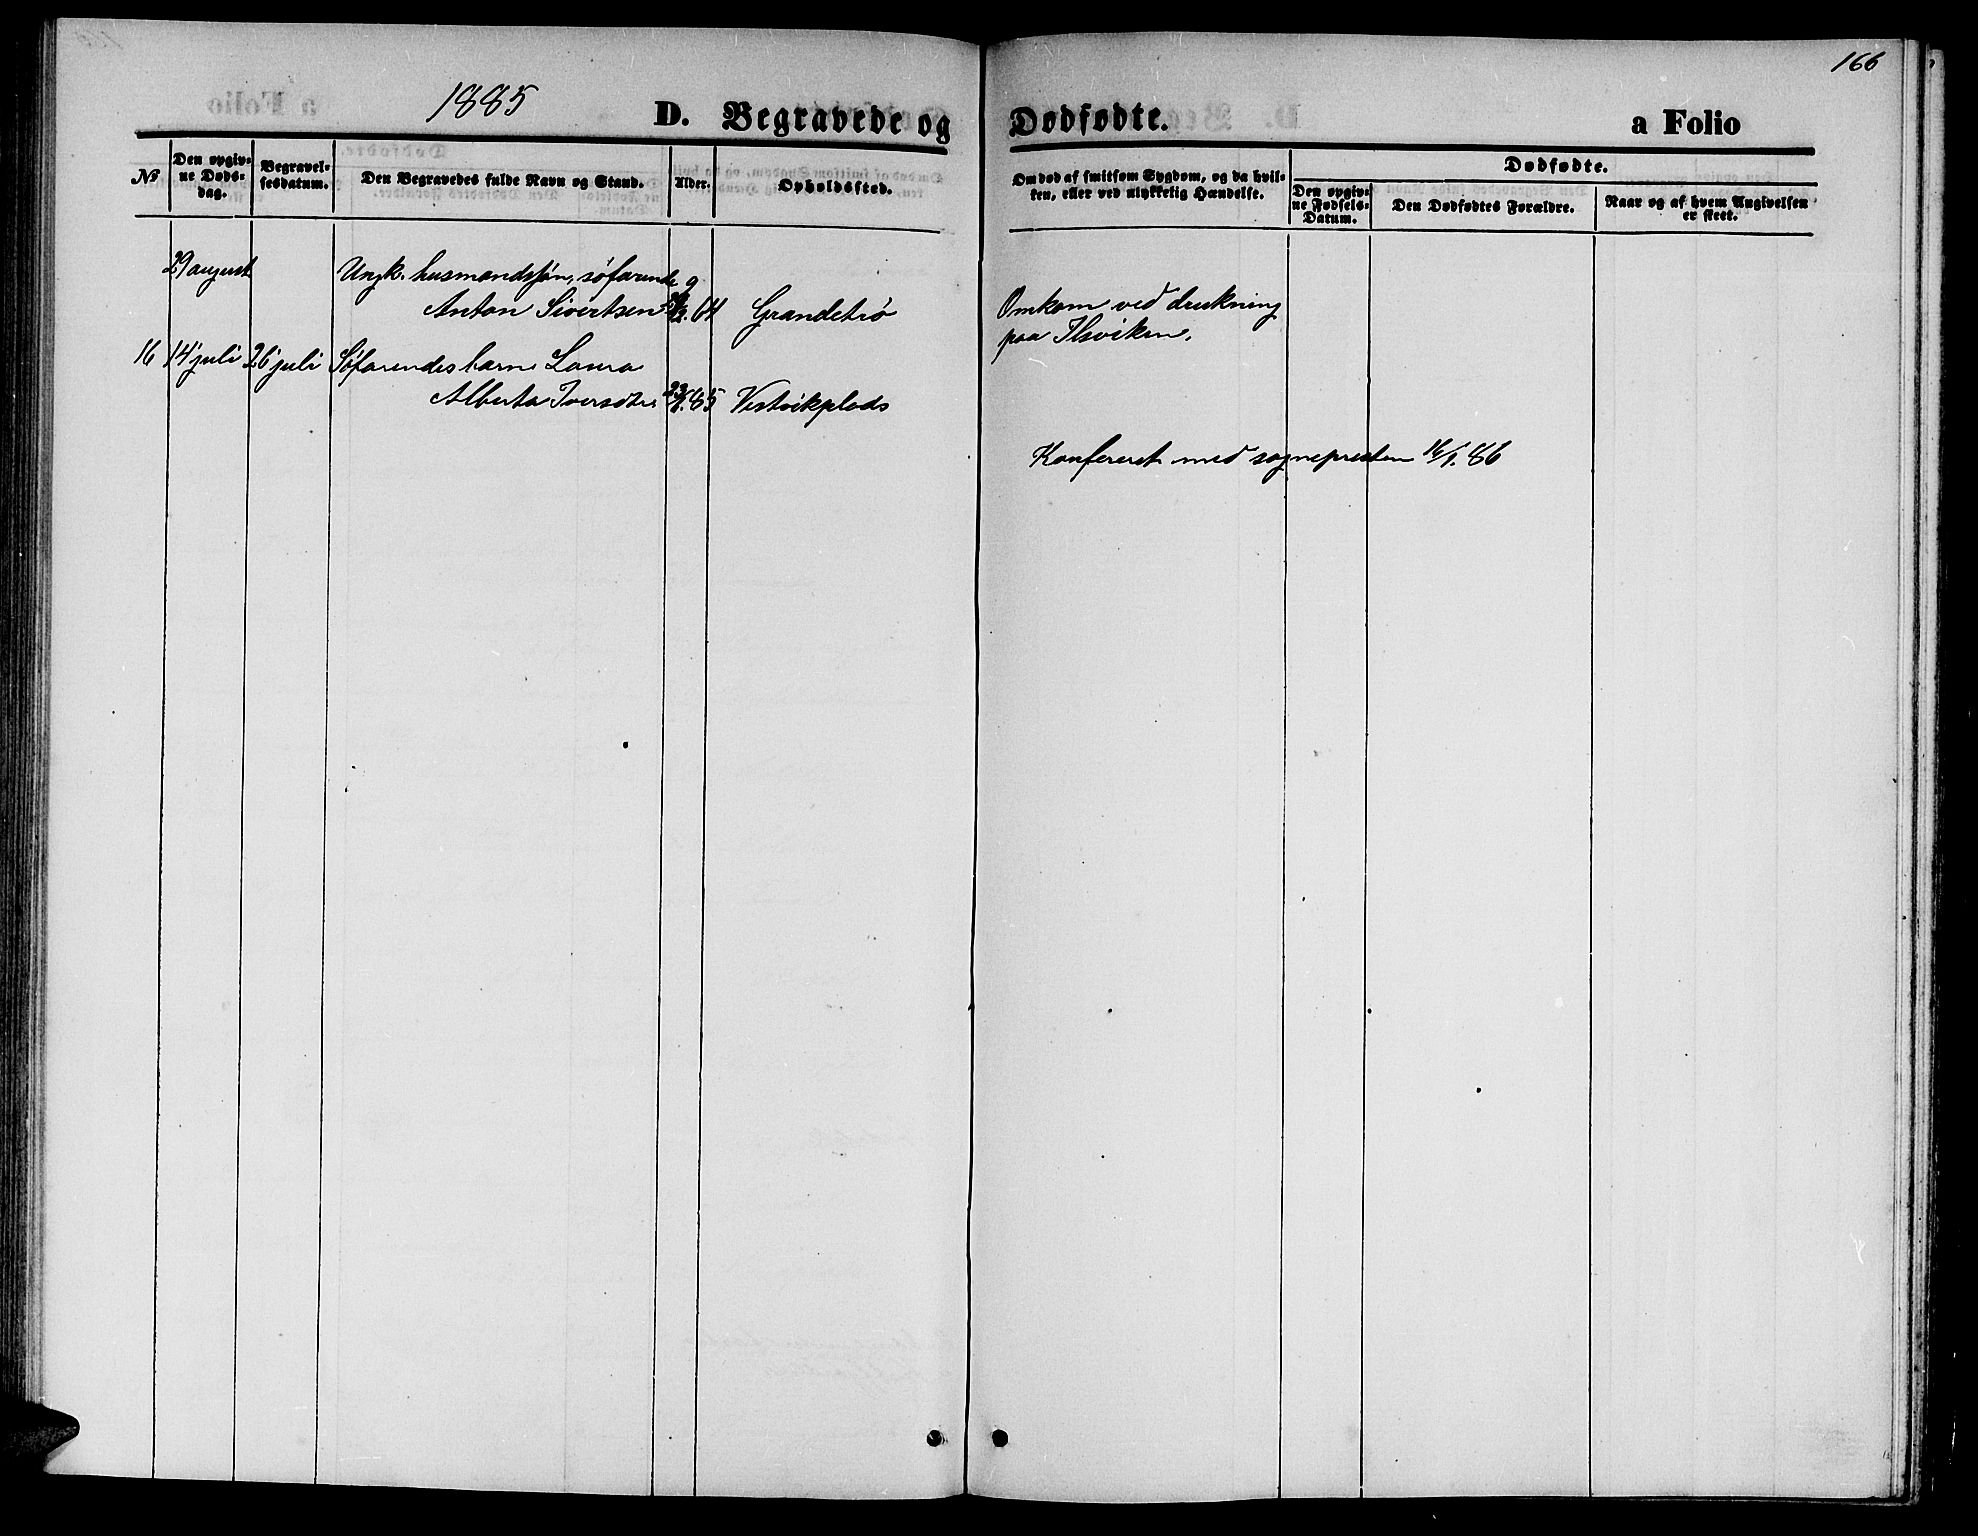 166
1885
D. Begravede og Dødfødte.
a Folio
No
Den opgivne Døds-
dag.
Begravel-
sesdatum.
Den Begravedes fulde Navn og Stand.
Alder.
Opholdssted.
Om død af smitsom Sygdom, og da hvil-
ken, eller ved ulykkelig Hændelse.
Dødfødte.
Den opgiv-
ne Fødsels-
Datum.
Den Dødfødtes Forældre.
Naar og af hvem Angivelsen
er skeet.
29 august
Ungk. husmandssøn, søfarende
Anton Sivertsen
64
Grandetrø
Omkom ved drukning
paa Ilsviken.
16 14 juli 26 juli Søfarendes barn Laura
Alberta Iversdtr 85 Vestvikplads
Konfereret med sognepresten 16/1. 86